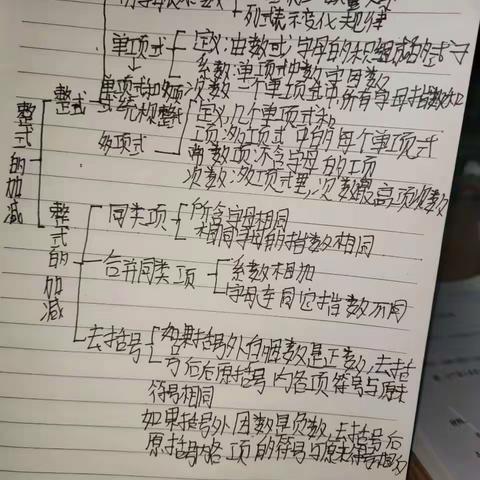 列式表示变化规律
单项式
定义:由数或字母的积组成的式子
系数:单项式中数字因数
次数:一个单项式中所有字母指数和
单项式和多项式统称整式
整式
多项式
定义:几个单项式和
项:多项式中的每个单项式
常数项:不含字母的项
次数:多项式里,次数最高项次数
整式的加减
整式的加减
同类项
所含字母相同
相同字母的指数相同
合并同类项
系数相加
字母连同它指数不同
去括号
如果括号外的因数是正数,去括
号后原括号内各项符号与原来
符号相同
如果括号外因数是负数,去括号后
原括号各项的符号与原来符号相反